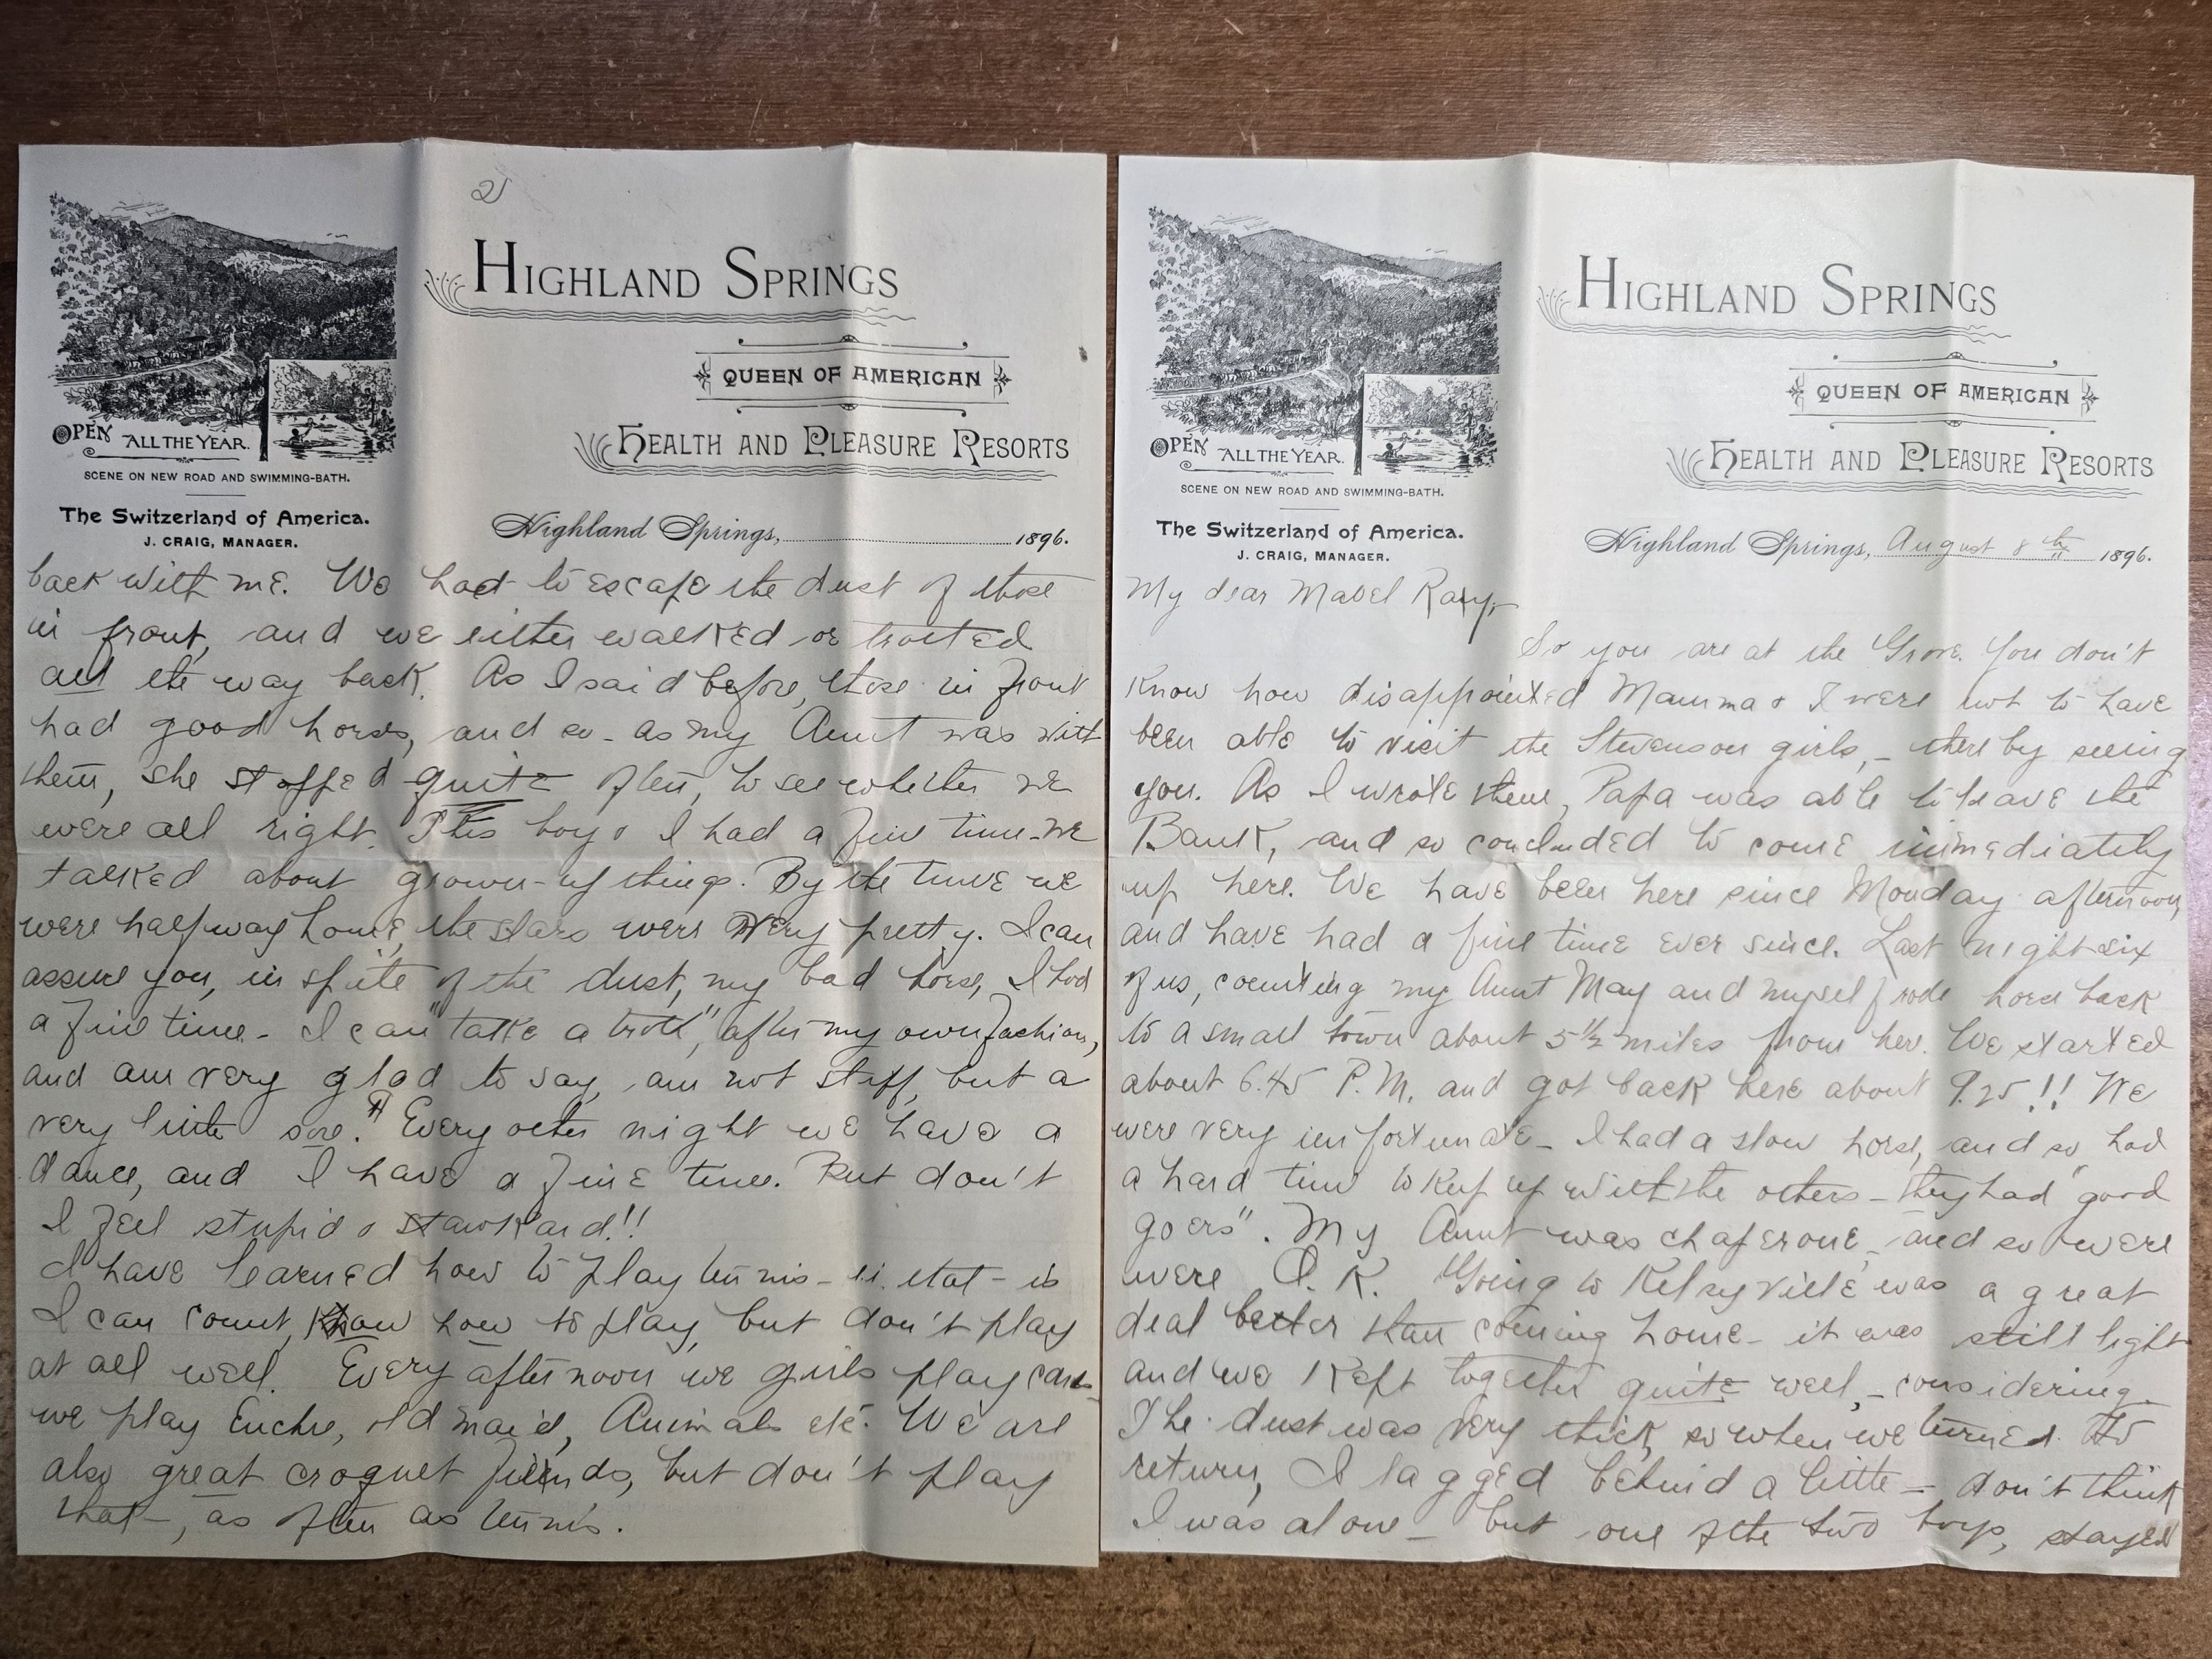 HIGHLAND SPRINGS
QUEEN OF AMERICAN
HEALTH AND PLEASURE RESORTS
OPEN ALL THE YEAR.
SCENE ON NEW ROAD AND SWIMMING-BATH.
The Switzerland of America.
J. CRAIG, MANAGER.
Highland Springs, August 8th 1896.
My dear Mabel Ray,-
So you are at the Grove. You don't
know how disappointed Mamma & I were not to have
been able to visit the Stevenson girls, - thereby seeing
you. As I wrote them, Papa was able to leave the
Bank, and so concluded to come immediately
up here. We have been here since Monday afternoon,
and have had a fine time ever since. Last night six
of us, counting my Aunt May and myself rode horse back
to a small town about 5 1/2 miles from here. We started
about 6.45 P.M. and got back here about 9.25!! We
were very unfortunate - I had a slow horse, and so had
a hard time to keep up with the others - they had "good
goers". My Aunt was chaperone, and so we were
were O.K. Going to Kelseyville was a great
deal better than coming home - it was still light
and we kept together quite well, - considering.
The dust was very thick, so when we turned to
return, I lagged behind a little - don't think
I was alone - but one of the two boys, stayed
2)
HIGHLAND SPRINGS
QUEEN OF AMERICAN
HEALTH AND PLEASURE RESORTS
OPEN ALL THE YEAR.
SCENE ON NEW ROAD AND SWIMMING-BATH.
The Switzerland of America.
J. CRAIG, MANAGER.
Highland Springs, 1896.
back with me. We had to escape the dust of those
in front, and we either walked or trotted
all the way back. As I said before, those in front
had good horses, and so - as my Aunt was with
them, she stopped quite often, to see whether we
were all right. This boy & I had a fine time - we
talked about grown-up things. By the time we
were halfway home, the stars were very pretty. I can
assure you, in spite of the dust, my bad horse, I had
a fine time - I can "take a trot", after my own fashion,
and am very glad to say, am not stiff, but a
very little sore." Every other night we have a
dance, and I have a fine time. But don't
I feel stupid & awkard!!
I have learned how to play tennis - that - is
I can count, know how to play, but don't play
at all well. Every afternoon we girls play cards -
we play Euchre, old maid, Animals etc. We are
also great croquet fiends, but don't play
that -, as often as tennis.